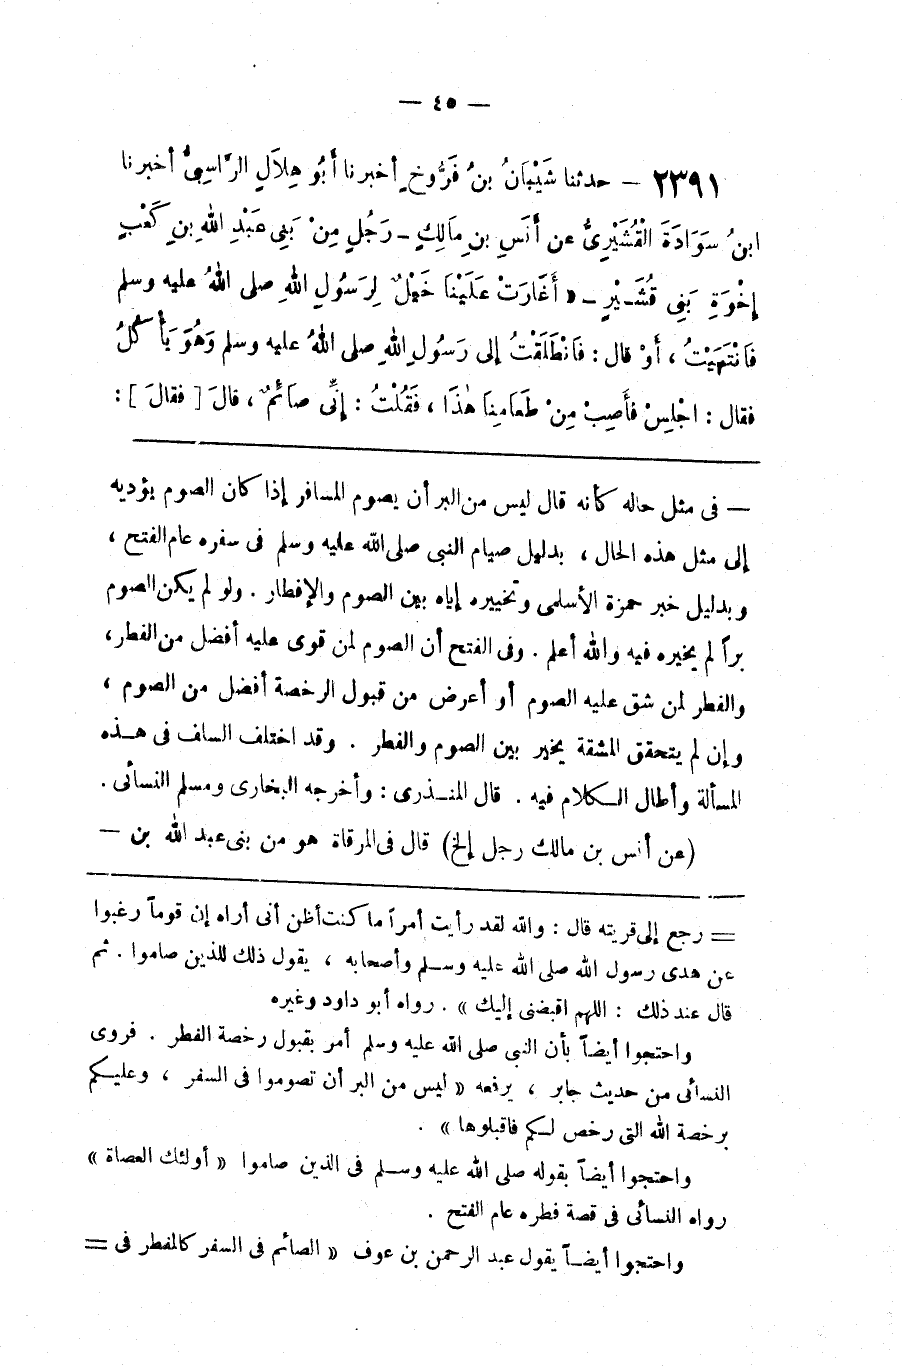 — ٤٥ —
٢٣٩١ – حدثنا شَيْبَانُ بنُ فَرُّوخٍ أخبرنا أَبُو هِلَالٍ الرَّاسِبِيُّ أخبرنا
ابنُ سَوَادَةَ الْقُشَيْرِيُّ عن أَنَسِ بنِ مَالِكٍ – رَجُلٍ مِنْ بَنِي عَبْدِ اللهِ بنِ كَعْبٍ
إِخْوَةِ بَنِي قُشَيْرٍ – « أَغَارَتْ عَلَيْنَا خَيْلٌ لِرَسُولِ اللهِ صلى اللهُ عليه وسلم
فَانْتَهَيْتُ ، أَوْ قال : فَانْطَلَقْتُ إلى رَسُولِ اللهِ صلى اللهُ عليه وسلم وَهُوَ يَأْكُلُ
فقال : اجْلِسْ فأَصِبْ مِنْ طَعَامِنَا هٰذَا ، فَقُلْتُ : إِنِّي صَائمٌ ، قالَ [ فقالَ ] :
— فى مثل حاله كأنه قال ليس من البر أن يصوم المسافر إذا كان الصوم يؤديه
إلى مثل هذه الحال ، بدليل صيام النبى صلى الله عليه وسلم فى سفره عام الفتح ،
وبدليل خبر حمزة الأسلمى وتخييره إياه بين الصوم والإفطار . ولو لم يكن الصوم
براً لم يخيره فيه والله أعلم . وفى الفتح أن الصوم لمن قوى عليه أفضل من الفطر ،
والفطر لمن شق عليه الصوم أو أعرض من قبول الرخصة أفضل من الصوم ،
وإن لم يتحقق المشقة يخير بين الصوم والفطر . وقد اختلف السلف فى هـذه
المسألة وأطال الـكلام فيه . قال المنـذرى : وأخرجه البخارى ومسلم النسائى .
(عن أنس بن مالك رجل إلخ) قال فى المرقاة هو من بنى عبد الله بن —
= رجع إلى قريته قال : والله لقد رأيت أمراً ما كنت أظن أنى أراه إن قوماً رغبوا
عن هدى رسول الله صلى الله عليه وسـلم وأصحابه ، يقول ذلك للذين صاموا . ثم
قال عند ذلك : اللهم اقبضنى إليك » . رواه أبو داود وغيره
واحتجوا أيضاً بأن النبى صلى الله عليه وسلم أمر بقبول رخصة الفطر . فروى
النسائى من حديث جابر ، يرفعه « ليس من البر أن تصوموا فى السفر ، وعليـكم
برخصة الله التى رخص لـكم فاقبلوها » .
واحتجوا أيضاً بقوله صلى الله عليه وسـلم فى الذين صاموا « أولئك العصاة »
رواه النسائى فى قصة فطره عام الفتح .
واحتجوا أيضـاً بقول عبد الرحمن بن عوف « الصائم فى السفر كالمفطر فى =